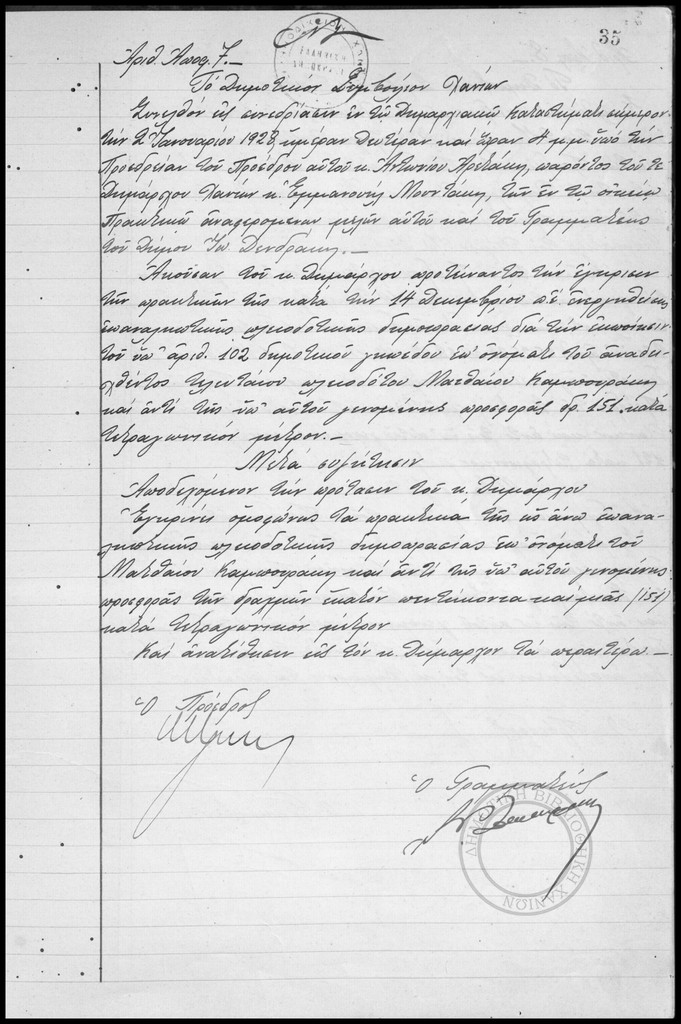 35
Ἀριθ. Ἀποφ. 7.—
Τό Δημοτικόν Συμβούλιον Χανίων
Συνελθόν εἰς συνεδρίασιν ἐν τῷ Δημαρχιακῷ Καταστήματι σήμερον
τήν 2 Ἰανουαρίου 1928 ἡμέραν Δευτέραν καί ὥραν 4 μ.μ. ὑπό τήν
Προεδρείαν τοῦ Προέδρου αὐτοῦ κ. Ἀντωνίου, παρόντος τοῦ τε
Δημάρχου Χανίων κ. Ἐμμανουήλ Μουντάκη, τῶν ἐν τῷ οἰκείῳ
Πρακτικῷ ἀναφερομένων μελῶν αὐτοῦ καί τοῦ Γραμματέως
τοῦ Δήμου Ἰω Δενδράκη.—
Ἀκοῦσαν τοῦ κ. Δημάρχου προτείναντος τήν ἔγκρισιν
τῶν πρακτικῶν τῆς κατά τήν 14 Δεκεμβρίου π.ἔ. ἐνεργηθείσης
ἐπαναληπτικῆς πλειοδοτικῆς δημοπρασίας διά τήν ἐκποίησιν
τοῦ ὑπ' ἀριθ. 102 δημοτικοῦ γηπέδου ἐπ' ὀνόματι τοῦ ἀναδει-
χθέντος τελευταίου πλειοδότου Ματθαίου Καμπουράκη
καί ἀντί τῆς ὑπ' αὐτοῦ γενομένης προσφορᾶς δρ. 151 κατά
τετραγωνικόν μέτρον.—
Μετά συζήτησιν
Ἀποδεχόμενον τήν πρότασιν τοῦ κ. Δημάρχου
Ἐγκρίνει ὁμοφώνως τά πρακτικά τῆς ὡς ἄνω ἐπανα-
ληπτικῆς πλειοδοτικῆς δημοπρασίας ἐπ' ὀνόματι τοῦ
Ματθαίου Καμπουράκη καί ἀντί τῆς ὑπ' αὐτοῦ γενομένης
προσφορᾶς τῶν δραχμῶν ἑκατόν πεντήκοντα καί μιᾶς (151)
κατά τετραγωνικόν μέτρον
Καί ἀνατίθησιν εἰς τόν κ. Δήμαρχον τά περαιτέρω.—
Ὁ Πρόεδρος
Ὁ Γραμματεύς
ΔΗΜΟΤΙΚΗ ΒΙΒΛΙΟΘΗΚΗ ΧΑΝΙΩΝ